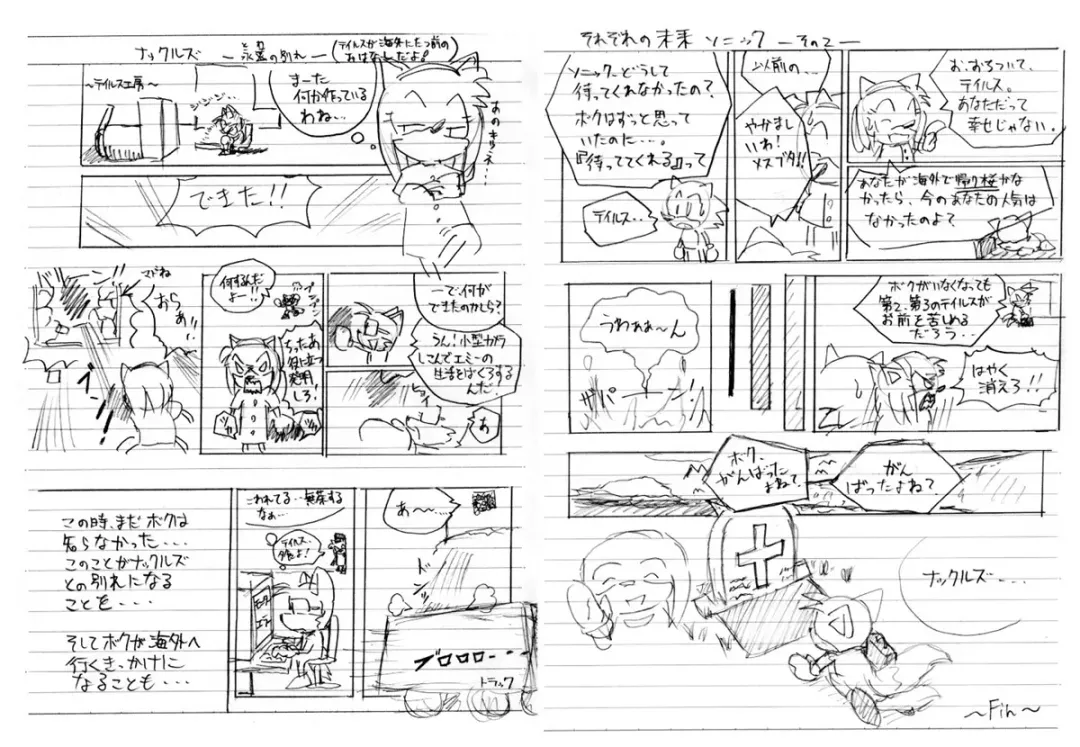 ナックルズ ―永遠の別れ―
(テイルスが海外にたつ前の
おはなしだよ!)
~テイルス工房~
まーた
何か作っている
わね・・
あのキツネ・・・
できた!!
一で何が
できたのかしら?
うん!小型カメラ
しこんでエミーの
生活をばくろする
んだ。
あ
何するんだ
よー!!
ちったあ
役に立つ
発明
しろ!
おら
あぁ!!
あ~・・・・
ドンッ
ブロロロ・・・
トラック
こわれてる・・無茶する
なぁ・・・
テイルス、
夕飯よ!
この時、まだボクは
知らなかった・・・
このことがナックルズ
との別れになる
ことを・・・
そしてボクが海外へ
行くきっかけに
なることも・・・
それぞれの未来 ソニック ―その2―
お・おちついて、
テイルス。
あなただって
幸せじゃない。
以前の・・
やかまし
いわ!
メスブタ!!
ソニック、どうして
待ってくれなかったの?
ボクはずっと思って
いたのに・・・。
『待っててくれる』って
テイルス・・
あなたが海外で帰り桜かな
かったら、今のあなたの人気は
なかったのよ?
ボクがいなくなっても
第2、第3のテイルスが
お前を苦しめる
だろう・・
はやく
消えろ!!
うわぁぁ~ん
ザパーン!
がん
ばったよね?
ボク、
がんばった
よね?
ナックルズ・・・・
~Fin~